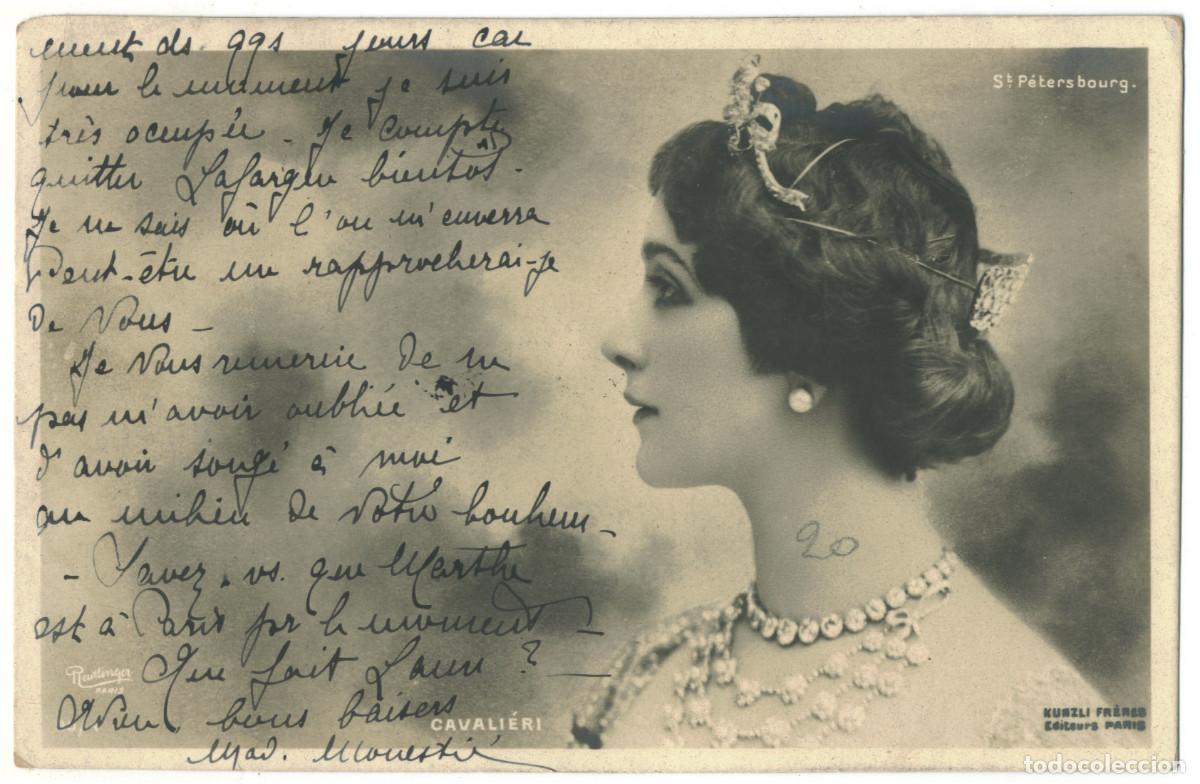 ment ds qqs jours car
pour le moment je suis
très occupée - Je compte
quitter Lafargue bientôt.
Je ne sais où l'on m'enverra
Peut-être me rapprocherai-je
de Vous -
Je Vous remercie de ne
pas m'avoir oubliée et
d'avoir songé à moi
au milieu de Votre bonheur -
- Savez-vs. que Marthe
est à Paris pr le moment -
Que fait Laure ? -
Adieu, bons baisers
Mad. Monestié
St Pétersbourg.
20
Reutlinger
PARIS
CAVALIÉRI
KUNZLI FRÈRES
Editeurs PARIS
todocoleccion